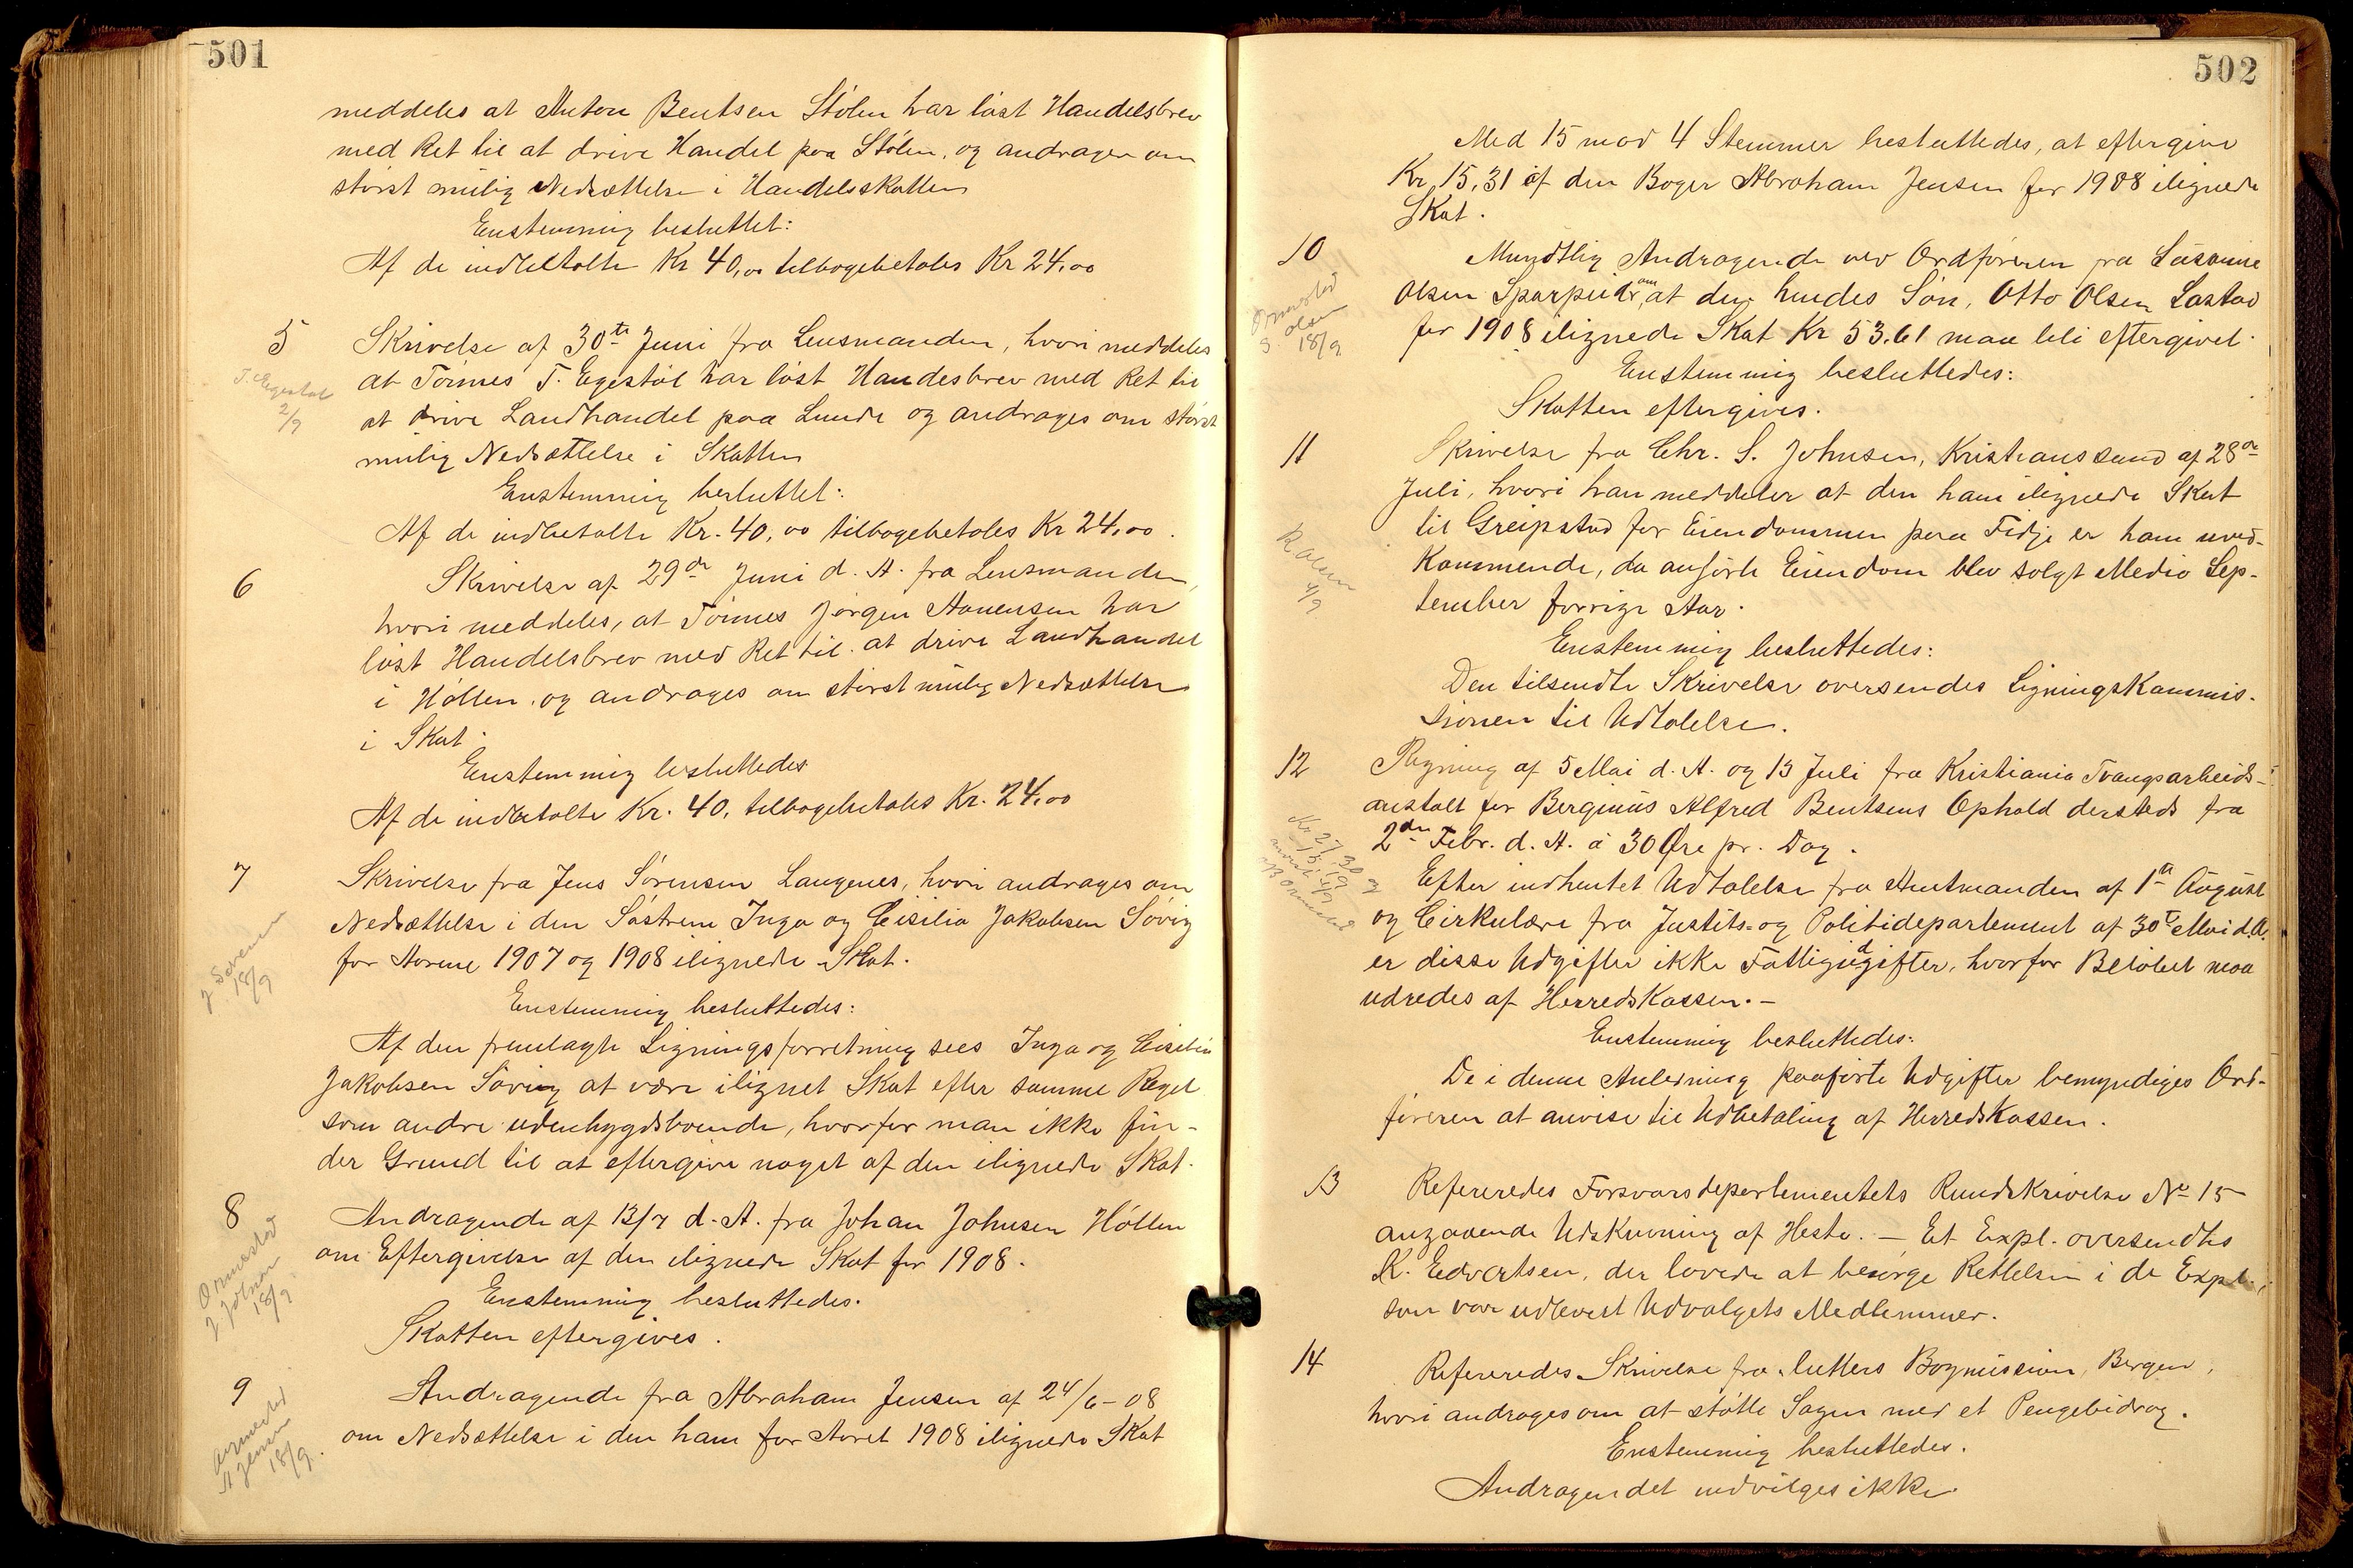 501
meddeles at Anton Bentsen Stölen har löst Handelsbrev
med Ret til at drive Handel paa Stölen, og andrages om
störst mulig Nedsættelse i Handelsskatten
Enstemmig besluttet:
Af de indbetalte Kr 40,00 tilbagebetales Kr 24.00
5 Skrivelse af 30te Juni fra Lensmanden, hvori meddeles
T. Egestøl 2/9
at Tönnes T. Egestöl har löst Handesbrev med Ret til
at drive Landhandel paa Lunde og andrages om störst
mulig Nedsættelse i Skatten
Enstemmig besluttet:
Af de indbetalte Kr. 40,00 tilbagebetales Kr 24.00.
6 Skrivelse af 29de Juni d. A. fra Lensmanden,
hvori meddeles, at Tönnes Jörgen Aanensen har
löst Handelsbrev med Ret til at drive Landhandel
i Höllen, og andrages om störst mulig Nedsættelse
i Skat.
Enstemmig besluttedes
Af de indbetalte Kr. 40, tilbagebetales Kr. 24.00
7 Skrivelse fra Jens Sörensen Langenes, hvori andrages om
Nedsættelse i den Söstrene Inga og Cisilia Jakobsen Sövig
J Sørensen 18/9
for Aarene 1907 og 1908 ilignede Skat.
Enstemmig besluttedes:
Af den fremlagte Ligningsforretning sees Inga og Cisilia
Jakobsen Sövig at være ilignet Skat efter samme Regel
som andre udenbygdsboende, hvorfor man ikke fin-
der Grund til at eftergive noget af den ilignede Skat.
8 Andragende af 13/7 d. A. fra Johan Johnsen Höllen
Ormestad J Johnsen 18/9
om Eftergivelse af den ilignede Skat for 1908.
Enstemmig besluttedes.
Skatten eftergives.
9 Andragende fra Abraham Jensen af 24/6-08
A Jensen 18/9.
om Nedsættelse i den ham for Aaret 1908 ilignede Skat
502
Med 15 mod 4 Stemmer besluttedes, at eftergive
Kr 15,31 af den Boger Abraham Jensen for 1908 ilignede
Skat.
10 Mundtlig Andragende ved Ordföreren fra Susanne
Olsen om, at den hendes Sön, Otto Olsen Lastad
Ormestad S. Olsen 18/9
for 1908 ilignede Skat Kr 53.61 maa bli eftergivet.
Enstemmig besluttedes:
Skatten eftergives.
11 Skrivelse fra Chr. S. Johnsen, Kristianssund af 28de
Juli, hvori han meddeler at den ham ilignede Skat
til Greipstad for Eiendommen paa Fidje er ham uved-
kommende, da anförte Eiendom blev solgt Medio Sep-
tember forrige Aar.
Enstemmig besluttedes:
Den tilsendte Skrivelse oversendes Ligningskommis-
sionen til Udtalelse.
12 Regning af 5 Mai d. A. og 13 Juli fra Kristiania Tvangsarbeids-
anstalt for Berginius Alfred Bentsens Ophold dersteds fra
2den Febr. d. A. á 30 Øre pr. Dag.
Kr 27,30 og
Efter indhentet Udtalelse fra Amtmanden af 1ste August
og Cirkulære fra Justits- og Politidepartement af 30te Mai d.A.
er disse Udgifter ikke Fattigudgifter, hvorfor Belöbet maa
udredes af Herredskassen.-
Enstemmig besluttedes:
De i denne Anledning paaförte Udgifter bemyndiges Ord-
föreren at anvise til Udbetaling af Herredskassen.
13 Refereredes Forsvarsdepartementets Rundskrivelse No 15
angaaende Udskrivning af Heste. - Et Expl. oversendtes
K. Edvartsen, der lovede at besörge Rettelsen i de Expl.,
som var udlevert Udvalgets Medlemmer.
14 Refereredes Skrivelse fra Luthers Bogmission, Bergen,
hvori andrages om at stötte Sagen med et Pengebidrag.
Enstemmig besluttedes.
Andragendet indvilges ikke.